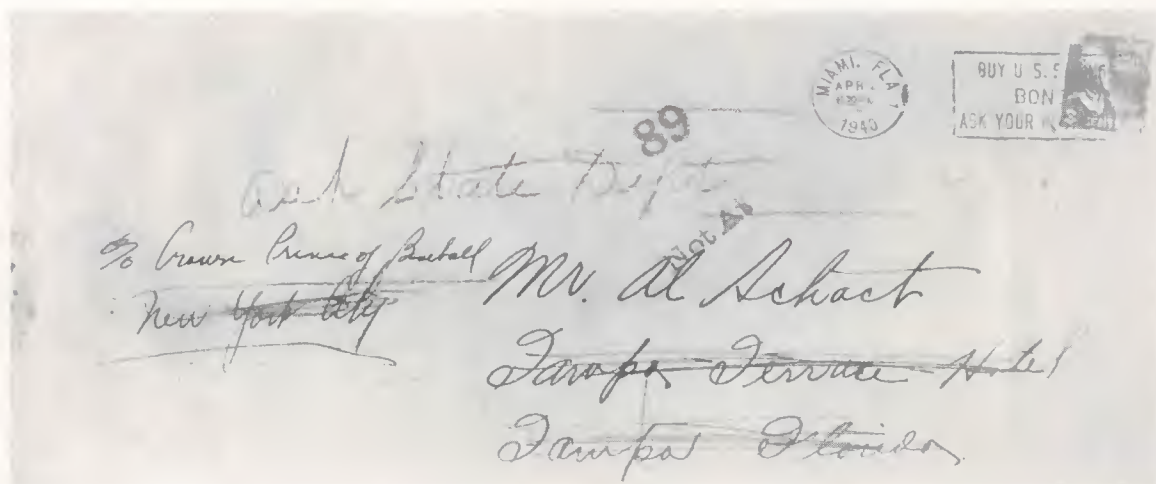 MIAMI, FLA
APR
1940
BUY U.S. S
BON
ASK YOUR
89
Ask State Dept.
Not At
c/o Crown Prince of Baseball
New York City
Mr. Al Schact
Tampa Terrace Hotel
Tampa Florida